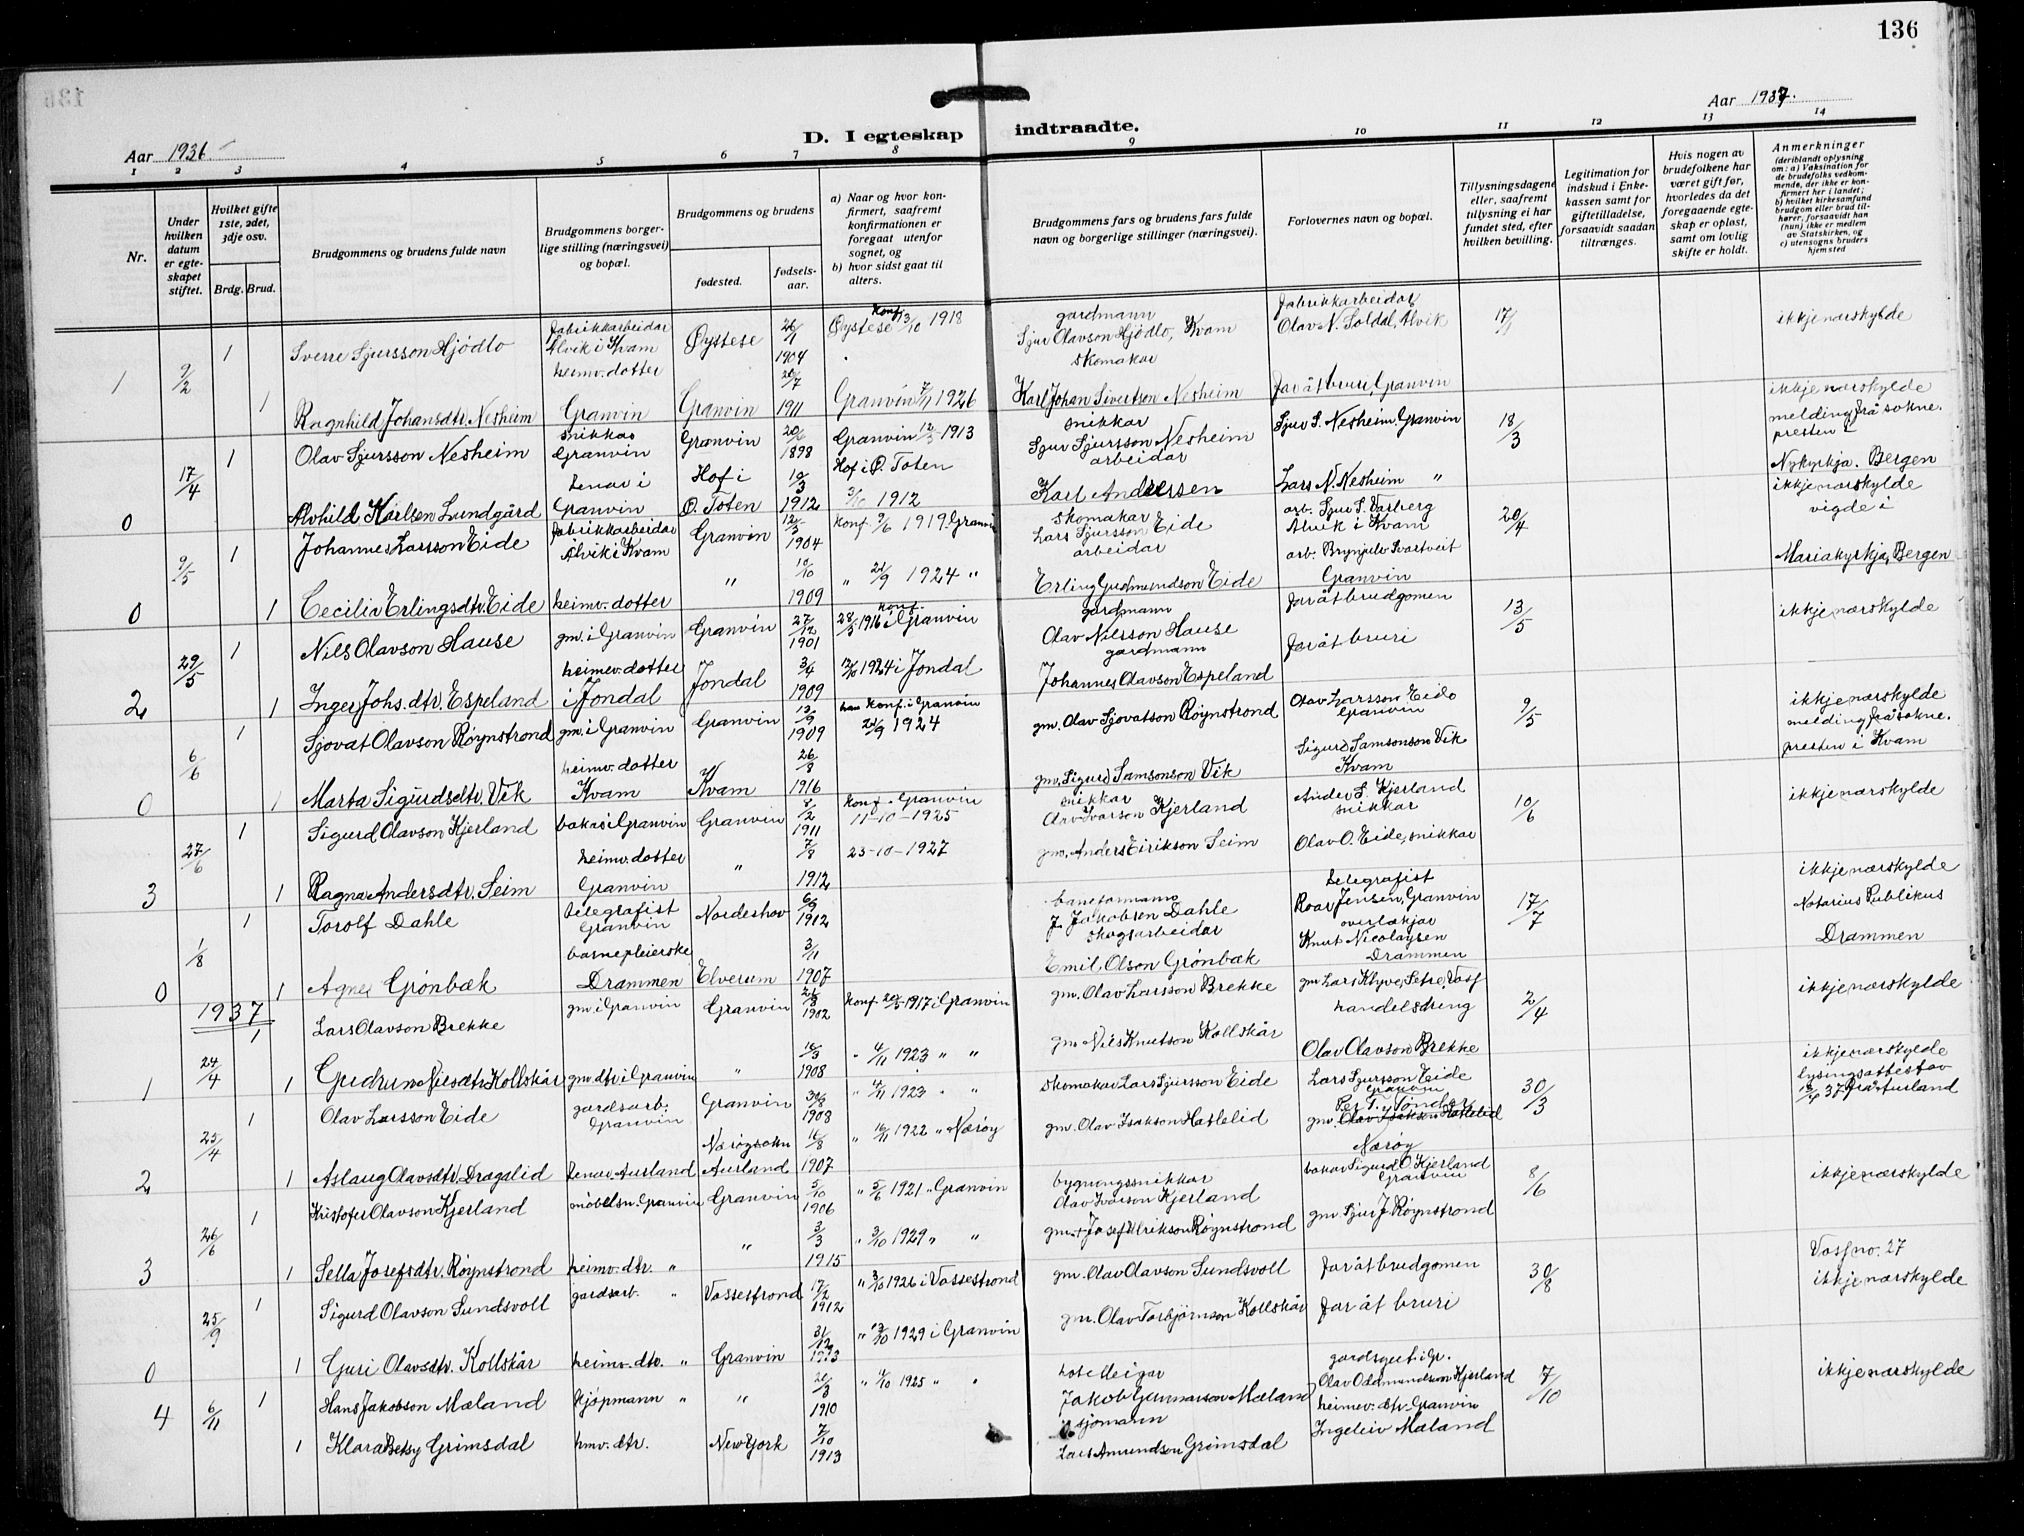 136
Aar 1936
D. I egteskap indtraadte.
Aar 1937.
1 2 3 4 5 6 7 8 9 10 11 12 13 14
Nr.
Under hvilken datum er egteskapet stiftet.
Hvilket gifte 1ste, 2det, 3dje osv.
Brdg. Brud.
Brudgommens og brudens fulde navn
Brudgommens borgerlige stilling (næringsvei) og bopæl.
Brudgommens og brudens
fødested.
fødselsaar.
a) Naar og hvor konfirmert, saafremt konfirmationen er foregaat utenfor sognet, og
b) hvor sidst gaat til alters.
Brudgommens fars og brudens fars fulde navn og borgerlige stillinger (næringsvei).
Forlovernes navn og bopæl.
Tillysningsdagene eller, saafremt tillysning ei har fundet sted, efter hvilken bevilling.
Legitimation for indskud i Enkekassen samt for giftetilladelse, forsaavidt saadan tiltrænges.
Hvis nogen av brudefolkene har været gift før, hvorledes da det foregaaende egteskap er opløst, samt om lovlig skifte er holdt.
Anmerkninger
(deriblandt oplysning om: a) Vaksination for de brudefolks vedkommende, der ikke er konfirmert her i landet; b) hvilket kirkesamfund brudgom eller brud tilhører, forsaavidt han (hun) ikke er medlem av Statskirken, og c) utensogns bruders hjemsted
1 9/2 1 Sverre Sjursson Hjødlo fabrikkarbeidar Ålvik i Kvam Øystese 26/1 1904 Øystese Konf. 13/10 1918 gardmann Sjur Olavson Hjødlo, Kvam fabrikkarbeidar Olav N. Soldal, Ålvik 17/1 ikkje nærskylde
1 Ragnhild Johansdtr. Nesheim heimv. dotter Granvin Granvin 20/7 1911 Granvin 7/11 1926 skomakar Karl Johan Sivertsen Nesheim Far åt bruri, Granvin
0 17/4 1 Olav Sjursson Nesheim snikkar Granvin Granvin 20/2 1898 Granvin 12/3 1913 snikkar Sjur Sjursson Nesheim Sjur S. Nesheim, Granvin 18/3 ikkje nærskylde melding frå sokne.presten i Nykyrkja. Bergen
Alvhild Karlsen Lundgård tenar i Granvin Hof i Ø. Toten 10/3 1912 Hof i Ø. Toten 3/10 1912 arbeidar Karl Andersen Lars N. Nesheim "
0 9/5 1 Johannes Larsson Eide fabrikkarbeidar Ålvik i Kvam Granvin 12/3 1904 Konf 9/6 1919. Granvin skomakar Lars Sjursson Eide arb. Sjur S. Varberg Ålvik i Kvam 20/4 ikkje nærskylde vigde i Mariakyrkja, Bergen
1 Cecilie Erlingsdtr. Eide heimv. dotter " 10/10 1909 " 21/9 1924 " arbeidar Erling Gudmundson Eide arb. Brynjulv Svartveit Granvin
2 29/5 1 Nils Olavson Hause gm. i Granvin Granvin 27/12 1901 28/5 1916 konf. i Granvin gardmann Olav Nilsson Hause Far åt brudgomen 13/5 ikkje nærskylde
1 Inger Johs. dtr. Espeland heimev. dotter i Jondal Jondal 3/4 1909 12/10 1924 i Jondal gardmann Johannes Olavson Espeland Far åt bruri
0 6/6 1 Sjovat Olavson Røynstrond gm. i Granvin Granvin 12/9 1909 han konf. i Granvin 21/9 1924 gm. Olav Sjovatson Røynstrond Olav Larsson Eide Granvin 9/5 ikkje nærskylde melding frå sokne.presten i Kvam
1 Marta Sigurdsdtr. Vik heimv. dotter Kvam Kvam 26/8 1916 gm. Sigurd Samsonson Vik Sigurd Samsonson Vik Kvam
3 27/6 1 Sigurd Olavson Kjerland bakar i Granvin Granvin 8/2 1911 Konf. Granvin 11-10-1925 snikkar Olav Ivarson Kjerland Anders S. Kjerland snikkar 10/6 ikkje nærskylde
1 Ragna Andersdtr. Seim heimv. dotter Granvin " 7/8 1912 23-10-1927 gm. Anders Eirikson Seim Olav O. Eide, snikkar
0 1/8 1 Torolf Dahle telegrafist Granvin Nordeshov 6/9 1912 baneformann J. Jakobsen Dahle telegrafist Roar Jensen, Granvin 17/7 ikkje nærskylde Notarius Publikus Drammen
1 Agnes Grønbæk barnepleierske Drammen Elverum 3/11 1907 skogsarbeidar Emil Olson Grønbæk overlækjar Knut Nicolaysen Drammen
1937
1 24/4 1 Lars Olavson Brekke gm. i Granvin Granvin 21/8 1902 Konf 20/5 1917 i Granvin gm. Olav Larsson Brekke gm Lars Klyve, Setre, Voss 2/4 ikkje nærskylde
1 Gudrun Nilsdtr. Kollskår gm. dtr. i Granvin " 16/3 1908 " 4/11 1923 " " gm Nils Knutson Kollskår handelsdreng Olav Olavson Brekke
2 25/4 1 Olav Larsson Eide gardsarb. Granvin Granvin 30/8 1908 " 4/11 1923 " " skomakar Lars Sjursson Eide Lars Sjursson Eide Granvin 30/3 ikkje nærskylde lysingsattest av 12/4 37 frå Aurland
1 Aslaug Olavsdtr. Dragalid tenar Aurland Nærøysokn Aurland 16/8 1907 " 16/11 1922 " Nærøy gm. Olav Isakson Hatlelid Per T. Tønder gm. Olav Isakson Hatlelid Nærøy
3 26/6 1 Kristofer Olavson Kjerland møbelsn. Granvin Granvin 5/10 1906 " 5/6 1921 " Granvin bygningssnikkar Olav Ivarson Kjerland bakar Sigurd O. Kjerland Granvin 8/6 ikkje nærskylde
1 Sella Josefsdtr. Røynstrond heimv. dtr. " " 3/3 1915 " 3/10 1929 " " gm. + Josef Ulrikson Røynstrond gm. Sjur J. Røynstrond
0 25/9 1 Sigurd Olavson Sundsvoll gardsarb. " Vossestrond 17/2 1912 " 3/10 1926 i Vossestrond gm. Olav Olavson Sundsvoll Far åt brudgomen 30/8 Voss no. 27 ikkje nærskylde
1 Guri Olavsdtr. Kollskår heimv. dtr. " Granvin 31/12 1913 " 13/10 1929 i Granvin gm. Olav Torbjørnson Kollskår Far åt bruri
4 6/11 1 Hans Jakobson Mæland Kjøpmann " " 21/3 1910 " 4/10 1925 " " hotelleigar Jakob Gunnarson Mæland Olav Oddmundson Kjerland 7/10 ikkje nærskylde
1 Klara Betsy Grimsdal hmv. dtr. New York 7/10 1913 sjømann Lars Amundson Grimsdal heimev. dtr. Granvin Ingeleiv Mæland